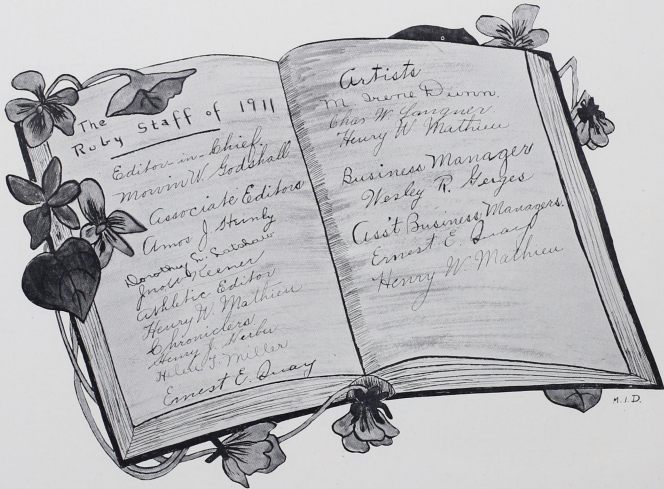 The
Ruby Staff of 1911
Editor-in-Chief.
Morvin W. Godshall
Associate Editors
Amos J. Heinly
Dorothy L. Latshaw
Jno. W. Keener
Athletic Editor
Henry W. Mathieu
Chroniclers
Henry J. Herber
Helen T. Miller
Ernest E. Quay
Artists
M. Irene Dunn.
Chas W. Langner
Henry W. Mathieu
Business Manager
Wesley R. Gerges
Ass't Business Managers.
Ernest E. Quay
Henry W. Mathieu
M.I.D.